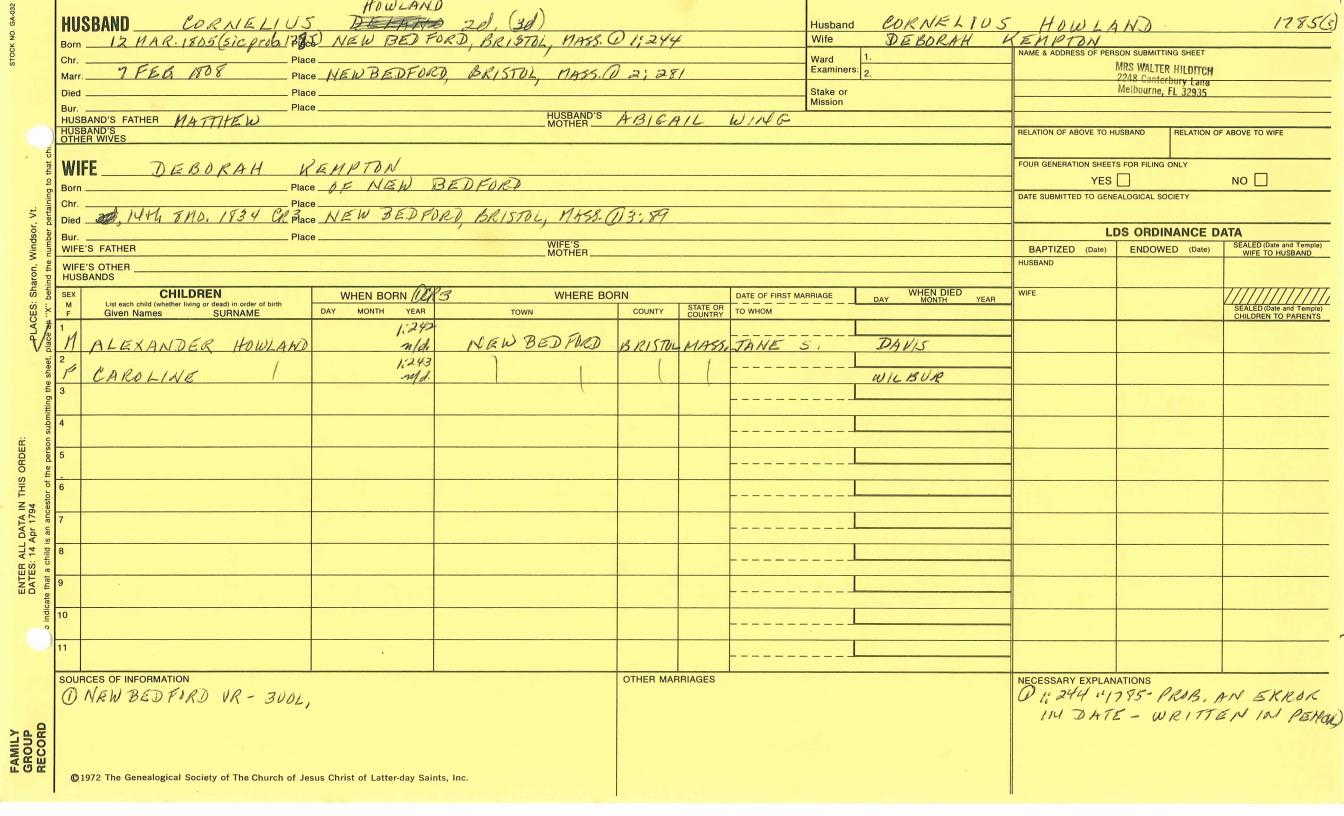 STOCK NO. GA-032
HOWLAND
HUSBAND CORNELIUS DELANO 2d. (3d)
Born 12 MAR. 1805 (sic prob. 1785) Place NEW BEDFORD, BRISTOL, MASS. ① 1;244
Chr. Place
Marr. 7 FEB 1808 Place NEW BEDFORD, BRISTOL, MASS. ① 2; 281
Died Place
Bur. Place
HUSBAND'S FATHER MATTHEW HUSBAND'S MOTHER ABIGAIL WING
HUSBAND'S OTHER WIVES
Husband CORNELIUS HOWLAND 1785(s)
Wife DEBORAH KEMPTON
Ward Examiners: 1.
2.
Stake or Mission
NAME & ADDRESS OF PERSON SUBMITTING SHEET
MRS WALTER HILDITCH
2248 Canterbury Lane
Melbourne, FL 32935
RELATION OF ABOVE TO HUSBAND RELATION OF ABOVE TO WIFE
FOUR GENERATION SHEETS FOR FILING ONLY
YES NO
DATE SUBMITTED TO GENEALOGICAL SOCIETY
WIFE DEBORAH KEMPTON
Born Place OF NEW BEDFORD
Chr. Place
Died 14th 8MO. 1834 CR3 Place NEW BEDFORD, BRISTOL, MASS. ① 3:89
Bur. Place
WIFE'S FATHER WIFE'S MOTHER
WIFE'S OTHER HUSBANDS
LDS ORDINANCE DATA
BAPTIZED (Date) ENDOWED (Date) SEALED (Date and Temple) WIFE TO HUSBAND
HUSBAND
WIFE
SEALED (Date and Temple) CHILDREN TO PARENTS
SEX M F CHILDREN List each child (whether living or dead) in order of birth Given Names SURNAME
WHEN BORN CR3 DAY MONTH YEAR
WHERE BORN TOWN COUNTY STATE OR COUNTRY
DATE OF FIRST MARRIAGE TO WHOM
WHEN DIED DAY MONTH YEAR
1 M ALEXANDER HOWLAND 1;242 n/d. NEW BEDFORD BRISTOL MASS. JANE S. DAVIS
2 F CAROLINE 1;243 n/d. WILBUR
3
4
5
6
7
8
9
10
11
SOURCES OF INFORMATION
① NEW BEDFORD VR - 3VOL,
OTHER MARRIAGES
NECESSARY EXPLANATIONS
① 1; 244 "1785- PROB. AN ERROR
IN DATE - WRITTEN IN PENCIL)
©1972 The Genealogical Society of The Church of Jesus Christ of Latter-day Saints, Inc.
FAMILY GROUP RECORD
ENTER ALL DATA IN THIS ORDER:
DATES: 14 Apr 1794
PLACES: Sharon, Windsor, Vt.
o indicate that a child is an ancestor of the person submitting the sheet, place an "X" behind the number pertaining to that ch